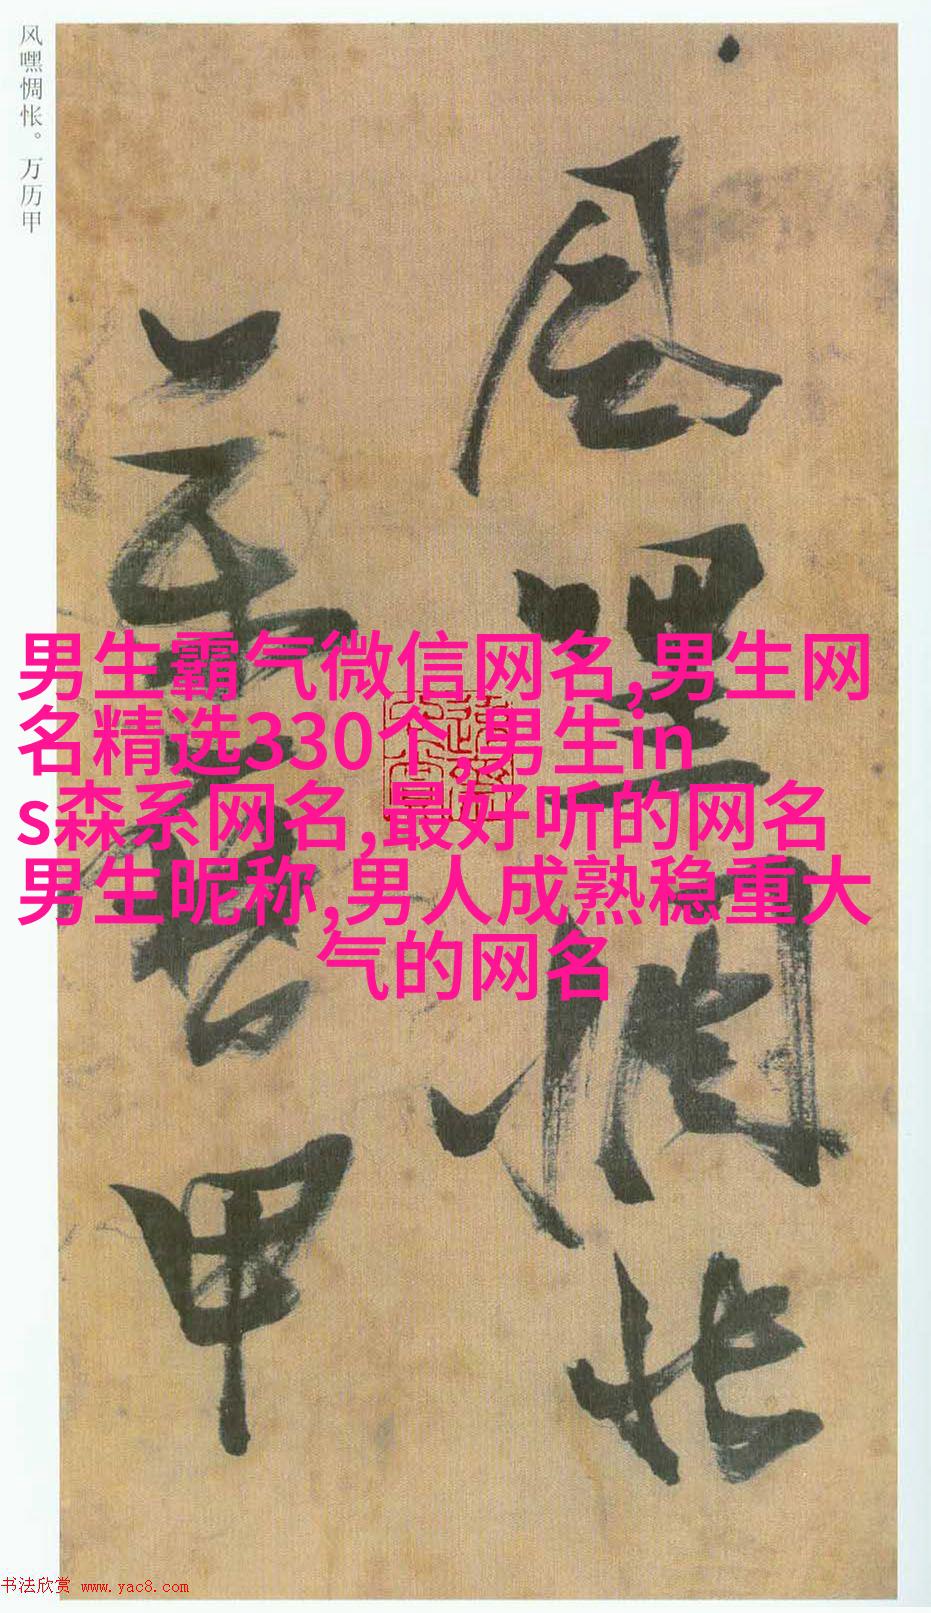 风嘿惆怅。万历甲
风嘿惆怅
万历甲
男生霸气微信网名,男生网
名精选330个,男生in
s森系网名,最好听的网名
男生昵称,男人成熟稳重大
气的网名
书法欣赏 www.yac8.com